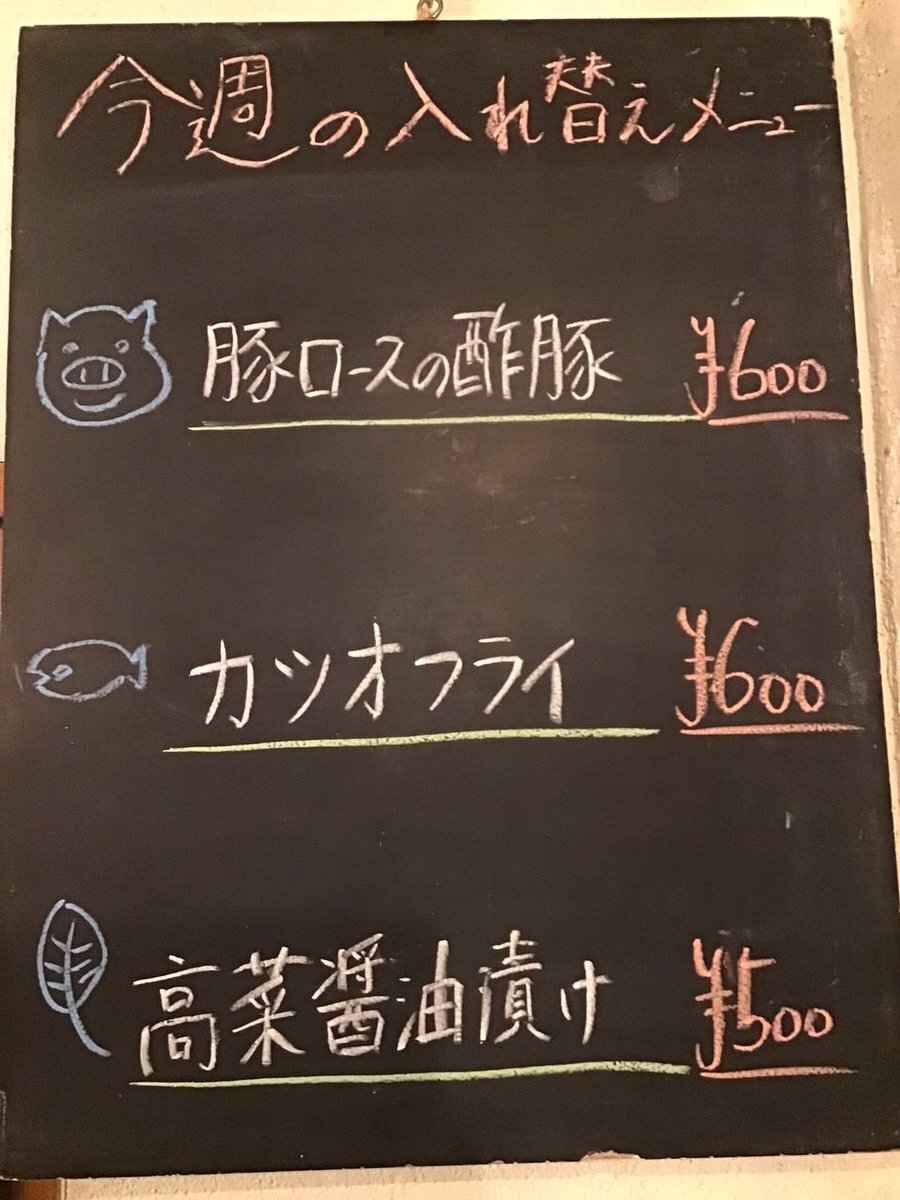 今週の入れ替えメニュー
豚ロースの酢豚 ¥600
カツオフライ ¥600
高菜醤油漬け ¥500